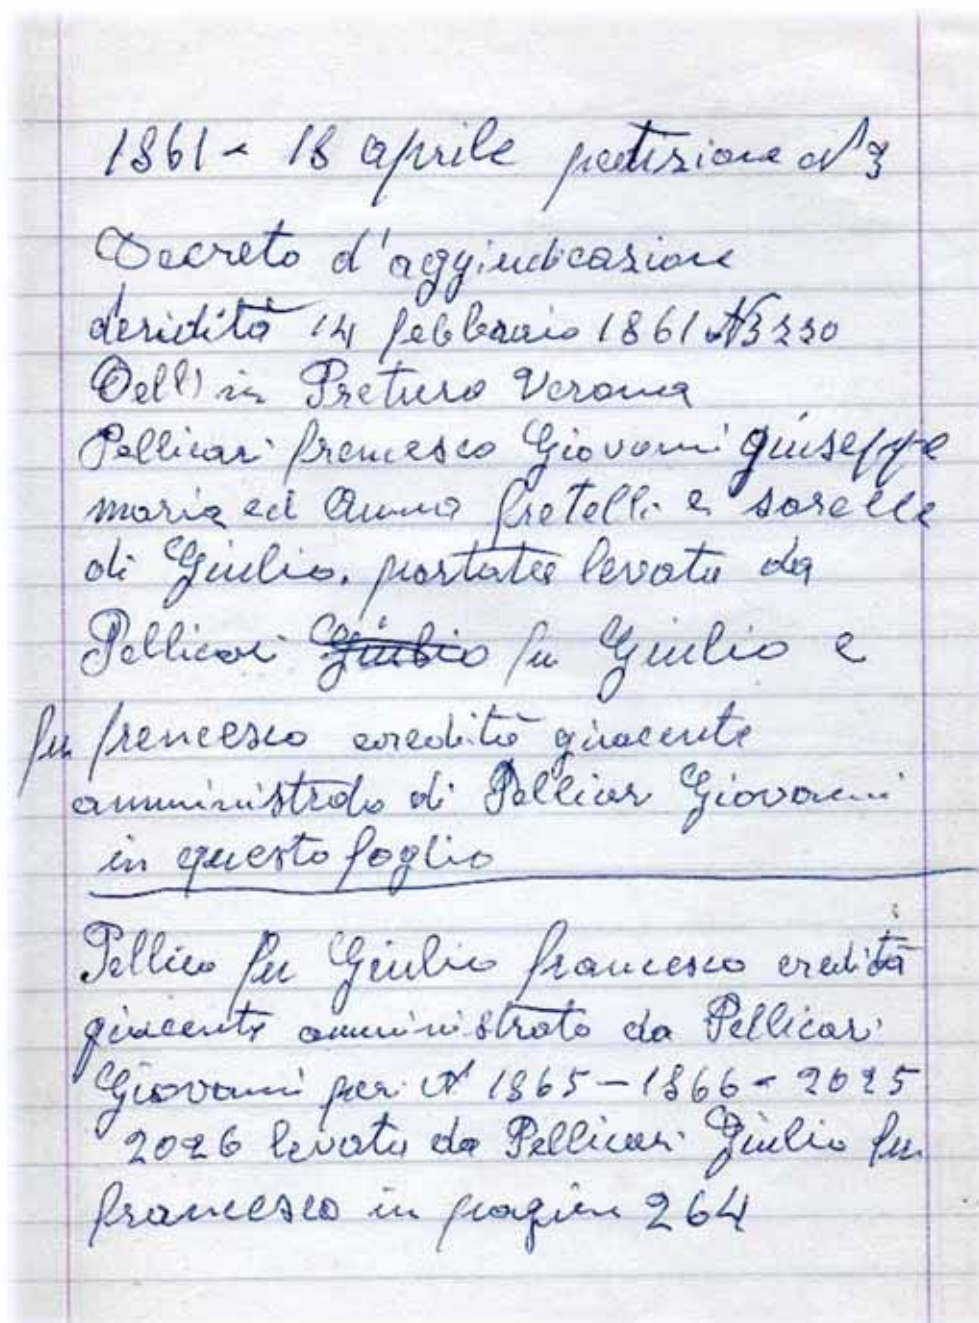 1861 - 18 aprile petizione N 3
Decreto d'aggiudicazione
deridità 14 febbraio 1861 N 3230
Dell' in Pretura Verona
Pellicari francesco Giovanni giuseppe
maria ed Anna fratelli e sorelle
di Giulio, portata levata da
Pellicari Giulio fu Giulio e
fu francesco eredità giacente
amministrata di Pellicari Giovanni
in questo foglio
Pellica fu Giulio francesco eredità
giacente amministrato da Pellicari
Giovanni per N 1865 - 1866 - 2025
2026 levata da Pellicari Giulio fu
francesco in pagina 264